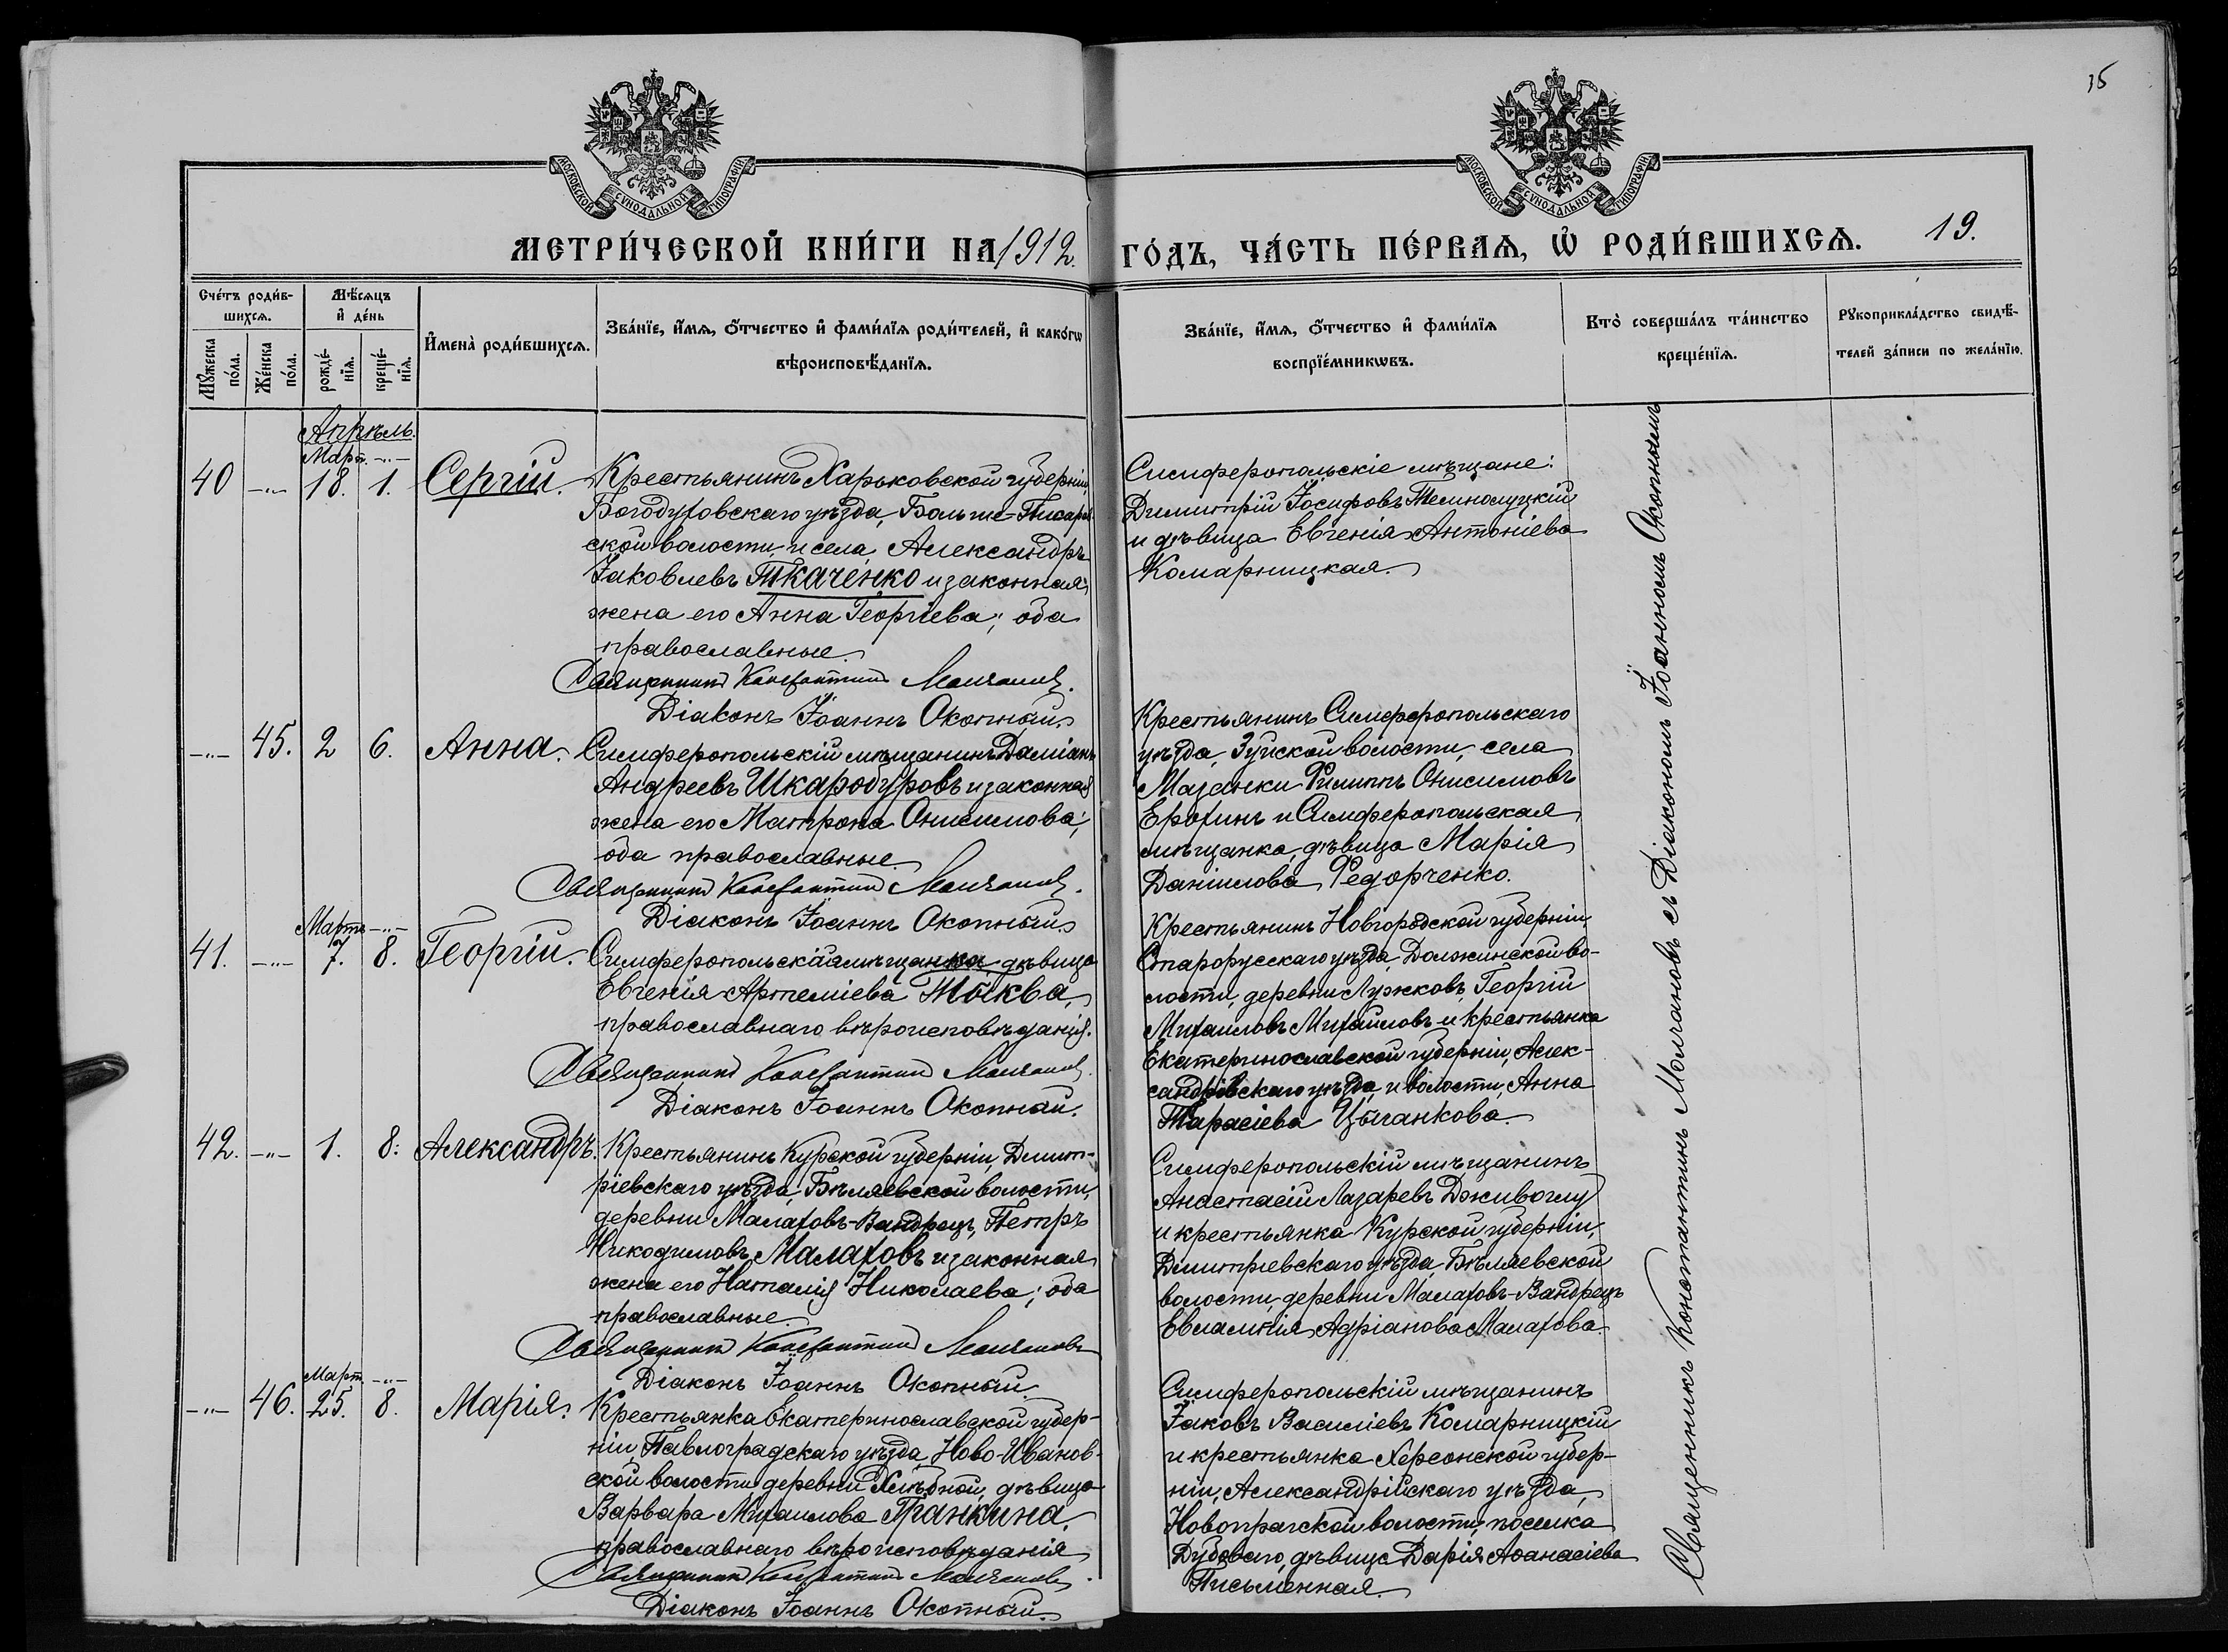 35
МОСКОВСКОЙ СѴНОДАЛЬНОЙ ТИПОГРАФІИ
МОСКОВСКОЙ СѴНОДАЛЬНОЙ ТИПОГРАФІИ
МЕТРИ́ЧЕСКОЙ КНИ́ГИ НА 1912.
ГО́ДЪ, ЧА́СТЬ ПЕ́РВАЯ, Ѡ҆ РОДИ́ВШИХСѦ. 19.
Сче́тъ роди́в-
шихсѧ.
Мꙋ́жеска по́ла.
Же́нска по́ла.
Мѣ́сѧцъ
и҆ де́нь
рожде́-
нїѧ.
креще́-
нїѧ.
И҆мена̀ роди́вшихсѧ.
Зва́нїе, и҆́мѧ, ѻ҆́тчество и҆ фами́лїѧ роди́телей, и҆ како́гѡ
вѣроисповѣ́данїѧ.
Зва́нїе, и҆́мѧ, ѻ҆́тчество и҆ фами́лїѧ
воспрїе́мникѡвъ.
Кто̀ соверша́лъ та́инство
креще́нїѧ.
Рꙋкоприкла́дство свидѣ́-
телей за́писи по жела́нїю.
Апрѣль.
Март. -„-
40 -„- 18. 1. Сергій.
Крестьянинъ Харьковской губерніи,
Богодуховскаго уѣзда, Больше-Писарев
ской волости и села, Александръ
Іаковлевъ Ткаченко и законная
жена его Анна Георгіева; оба
православные.
Священникъ Константинъ Молчановъ.
Діаконъ Іоаннъ Окопный.
Симферопольскіе мѣщане:
Димитрій Іосифовъ Темнолуцкій
и дѣвица Евгенія Антоніева
Комарницкая.
-„- 45. 2 6. Анна.
Симферопольскій мѣщанинъ Даміанъ
Андреевъ Шкародуровъ и законная
жена его Матрона Онисимова;
оба православные.
Священникъ Константинъ Молчановъ.
Діаконъ Іоаннъ Окопный.
Крестьянинъ Симферопольскаго
уѣзда, Зуйской волости, села
Мазанки Филиппъ Онисимовъ
Ерохинъ и Симферопольская
мѣщанка, дѣвица Марія
Даніилова Федорченко.
Мартъ -„-
41. -„- 7. 8. Георгій.
Симферопольская мѣщанка дѣвица
Евгенія Артеміева Тыква,
православнаго вѣроисповѣданія.
Священникъ Константинъ Молчановъ.
Діаконъ Іоаннъ Окопный.
Крестьянинъ Новгородской губерніи,
Старорусскаго уѣзда, Должинской во-
лости, деревни Лужковъ, Георгій
Михаиловъ Михайловъ и крестьянка
Екатеринославской губерніи, Алек-
сандровскаго уѣзда, и волости, Анна
Тарасіева Цыганкова.
42. -„- 1. 8. Александръ.
Крестьянинъ Курской губерніи, Димит-
ріевскаго уѣзда, Бѣляевской волости,
деревни Малахова-Вандрецъ, Петръ
Никодимовъ Малаховъ и законная
жена его Наталія Николаева; оба
православные.
Священникъ Константинъ Молчановъ
Діаконъ Іоаннъ Окопный.
Симферопольскій мѣщанинъ
Анастасій Лазаревъ Дживоглу
и крестьянка Курской губерніи,
Димитріевскаго уѣзда, Бѣляевской
волости, деревни Малаховъ-Вандрецъ
Евлампія Адріанова Малахова.
Март. -„-
-„- 46. 25. 8. Марія.
Крестьянка Екатеринославской губер-
ніи, Павлоградскаго уѣзда, Ново-Иванов-
ской волости деревни Хлѣбной, дѣвица
Варвара Михаилова Гранкина,
православнаго вѣроисповѣданія
Священникъ Константинъ Молчановъ.
Діаконъ Іоаннъ Окопный.
Симферопольскій мѣщанинъ
Іаковъ Василіевъ Комарницкій
и крестьянка Херсонской губер-
ніи, Александрійскаго уѣзда,
Новопрагской волости, поселка
Дубоваго, дѣвица Дарія Аѳанасіева
Письменная.
Священникъ Константинъ Молчановъ съ Діакономъ Іоанномъ Окопнымъ